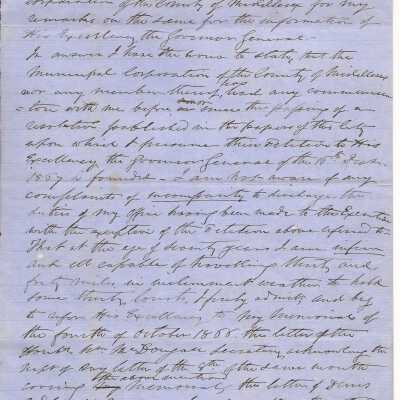 Corporation of the County of Middlesex for my
remarks on the same for the information of
His Excellency the Governor General.
In answer I have the honor to state, that the
Municipal Corporation of the County of Middlesex
nor any member thereof, has had any communica
-tion with me before or since the passing of a
resolution published in the papers of this City
upon which I presume their Petition to His
Excellency the Governor General of the 18th Sept.
1867 is founded. I am not aware of any
complaints of incompetency to discharge the
duties of my office having been made to the Executive
with the exception of the Petition above referred to
That at the age of seventy years I am infirm
and not capable of travelling thirty and
forty miles in inclement weather to hold
some thirty Courts, I freely admit, and beg
to refer His Excellency to my Memorial of
the fourth of October 1866 the letter of the
Honble Wm McDougall Secretary, acknowledging the
receipt of my letter of the 8th of the same month
covering the above mentioned Memorial, the letter of Denis